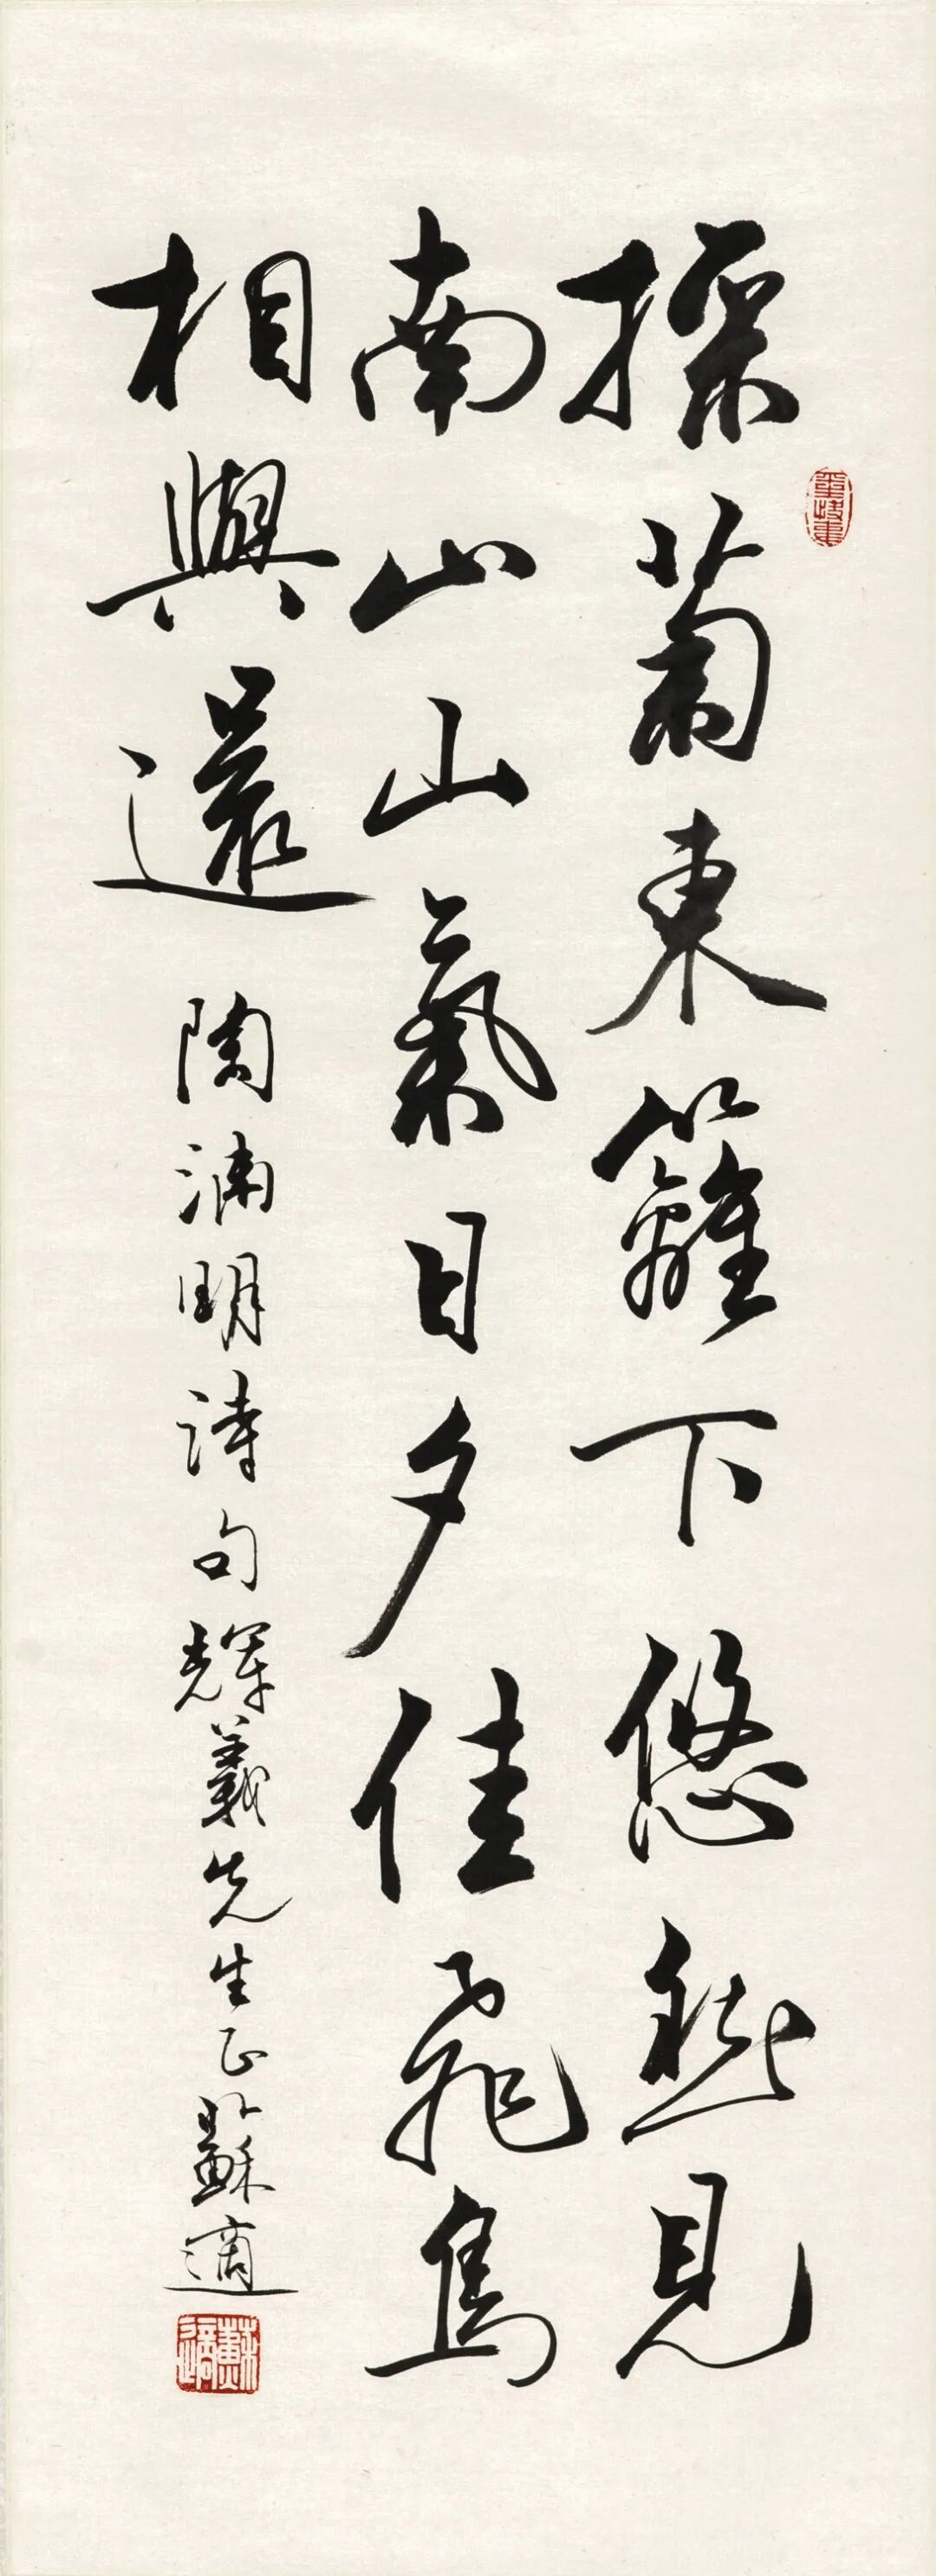 採菊東籬下悠然見
南山山氣日夕佳飛鳥
相與還
陶淵明詩句輝義先生正蘇適
蘇適